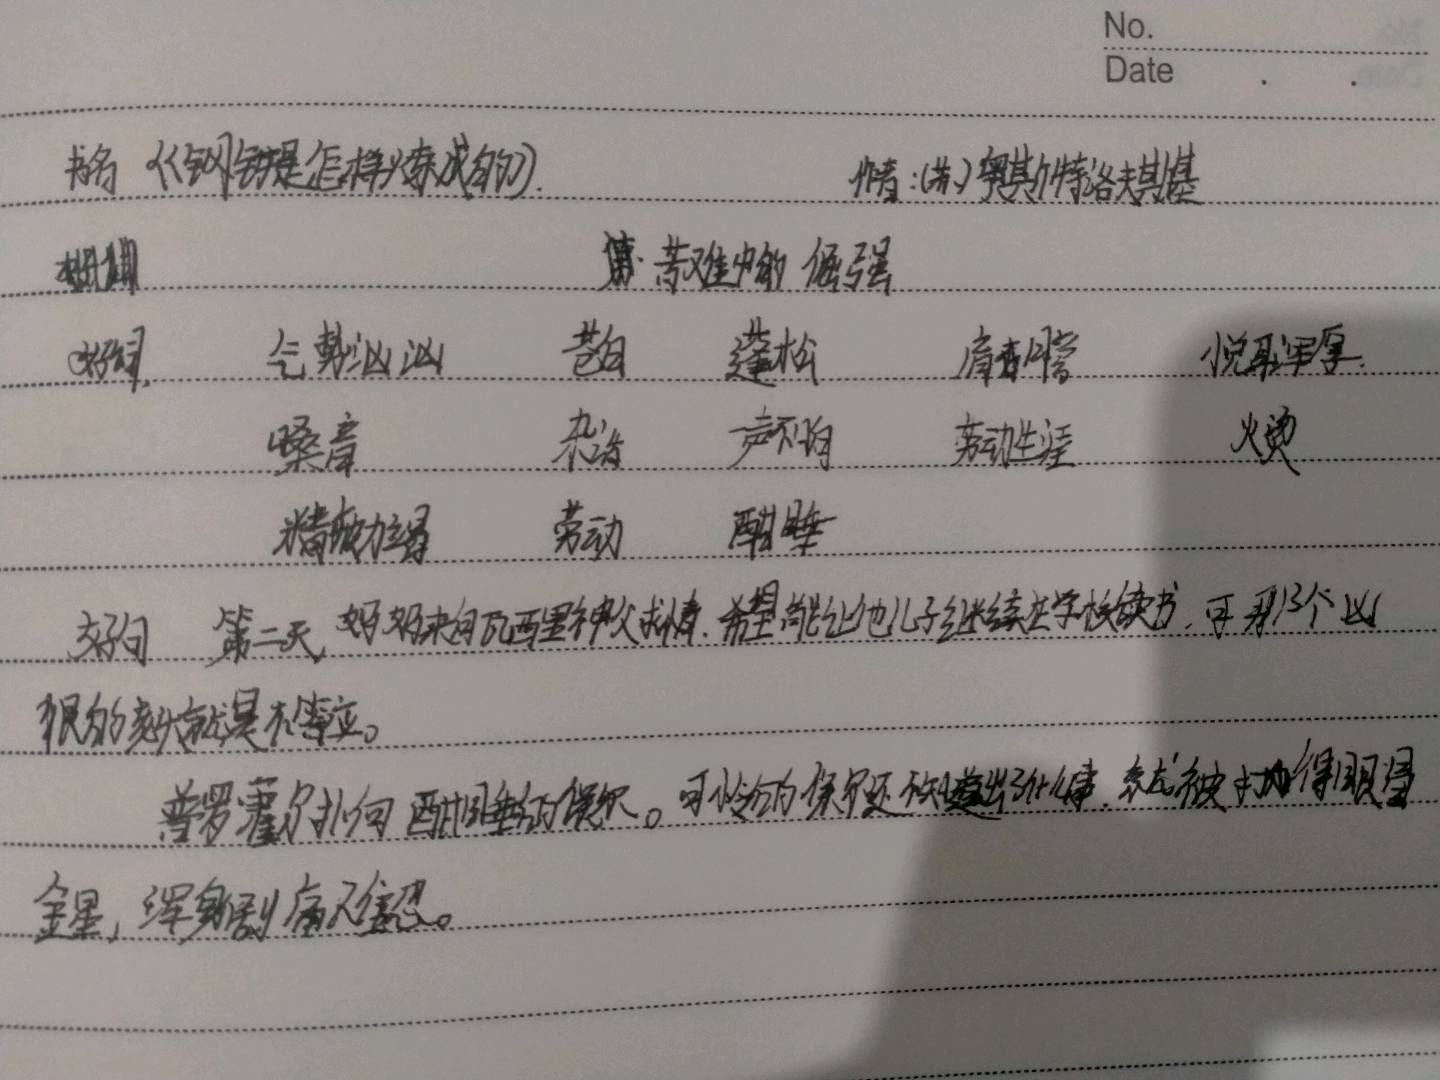 No.
Date . .
书名《钢铁是怎样炼成的》 作者:(苏)奥斯特洛夫斯基
苦难中的倔强
好词 气势汹汹 苍白 蓬松 肩 悦耳浑厚
嗓音 声不均 劳动生涯 火烫
精疲力竭 劳动 酣睡
好句 第二天,妈妈来向瓦西里神父求情.希望能让他儿子继续在学校读书,可那个凶
狠的老头就是不答应。
普罗霍尔扑向酣睡的保尔。可怜的保尔还不知道出了什么事.就被打得眼冒
金星,浑身剧痛难忍。